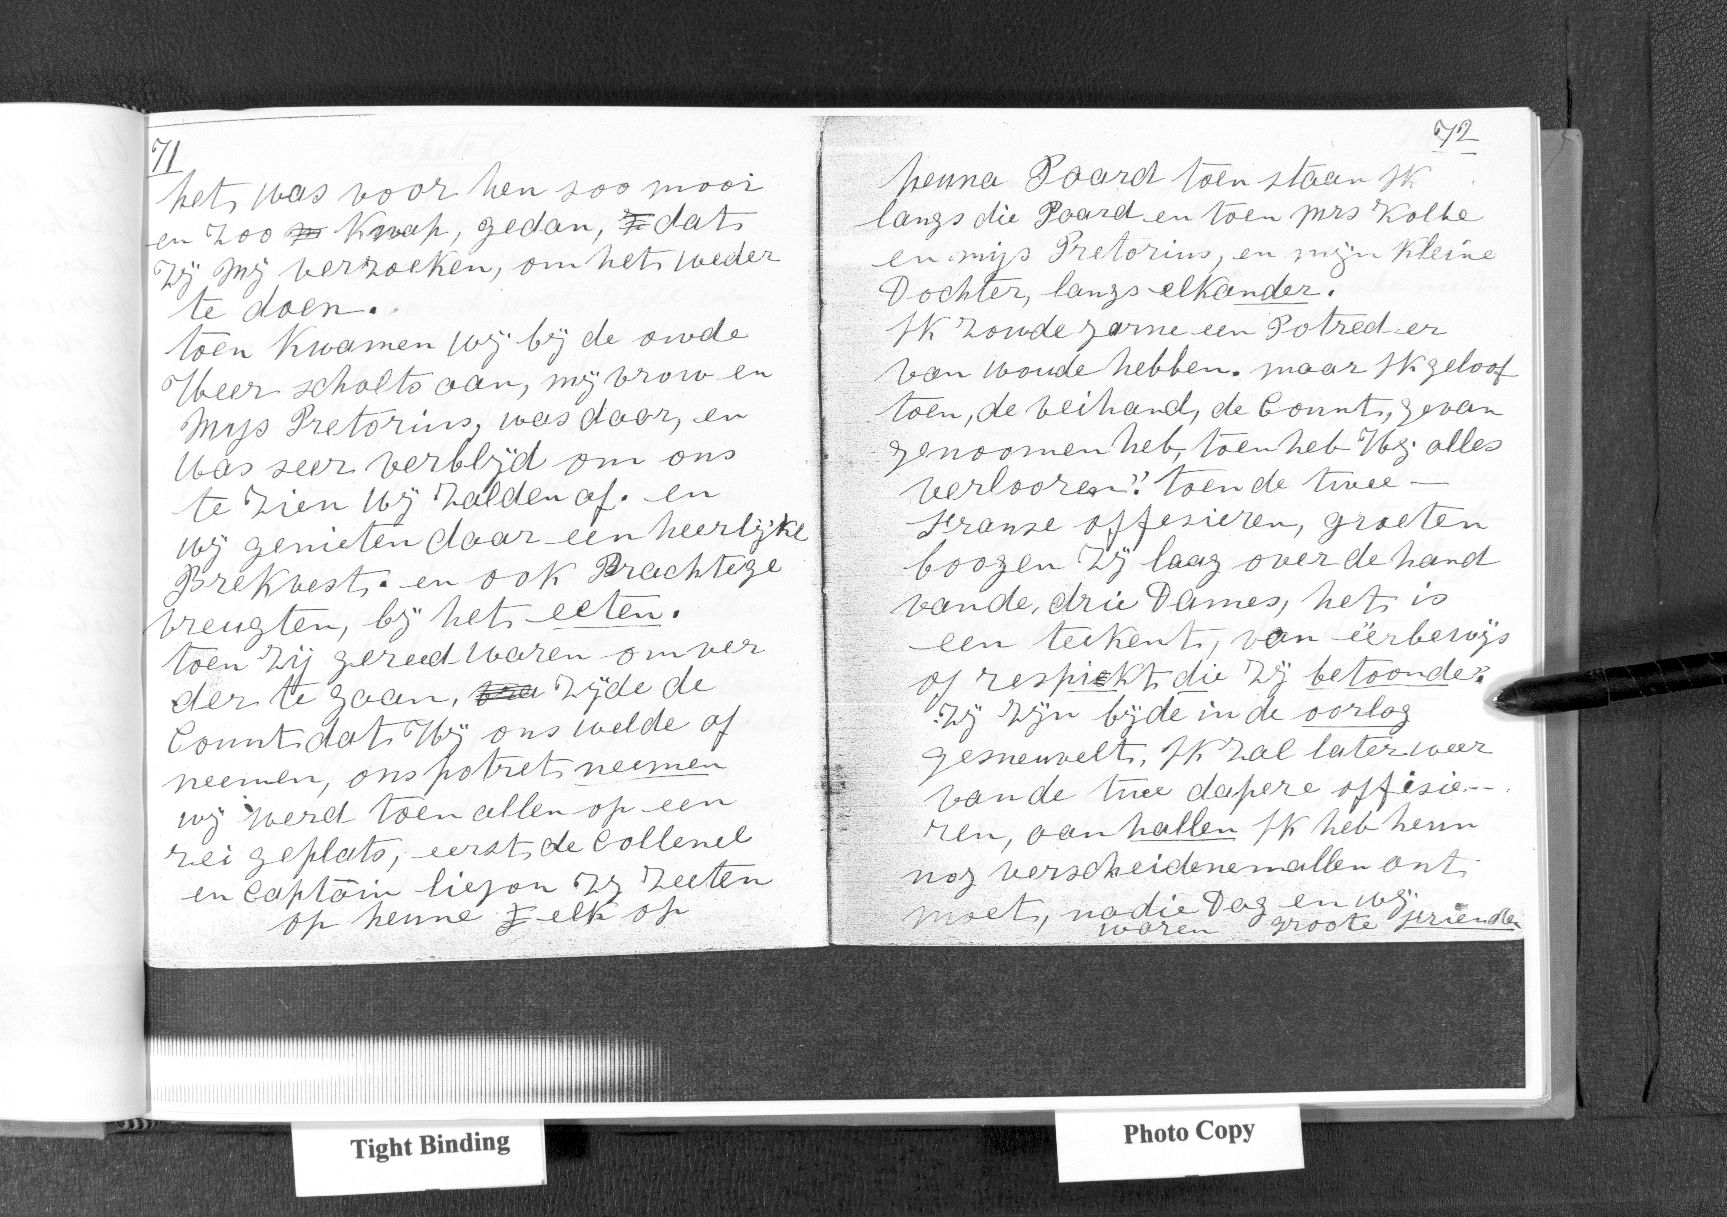 71
het was voor hen soo mooi
en zoo knap, gedan, dat
zÿ mÿ verzoeken, om het weder
te doen.
toen kwamen wÿ bÿ de owde
Heer scholts aan, mÿ vrow en
Mys Pretorius, was daar, en
was seer verblÿd om ons
te zien wÿ zalden af. en
wÿ genieten daar een heerlÿke
Brekvest. en ook Prachtege
vreugten, bÿ het eeten.
toen zÿ gereed waren om ver
der te gaan, zÿde de
Count dat Wÿ ons welde af
neemen, ons potret neemen
wÿ werd toen allen op een
rei geplats, eerst de Collenel
en Captäin liejon zÿ zeeten
op henne elk op
72
henna Paard toen staan Ik
langs die Paard en toen Mrs Kolbe
en mijs Pretorius, en mÿn kleine
Dochter, langs elkander.
Ik zoude garne een Potred er
van woude hebben. maar Ik geloof
toen, de veihand, de Count, gevan
genoomen heb, toen heb Wÿ alles
verlooren". toen de twee —
Franse offesieren, groeten
boogen zÿ laag over de hand
van de, drie Dames, het is
een teekent, van ëerbewÿs
of respiekt die zÿ betoonde".
zÿ zÿn bÿde in de oorlog
gesneuvelt, Ik zal later weer
van de twee dapere offisie--
ren, aan hallen Ik heb henn
nog verscheidenemallen ont
moet, na die Dag en wÿ
waren groote frienden
Tight Binding
Photo Copy